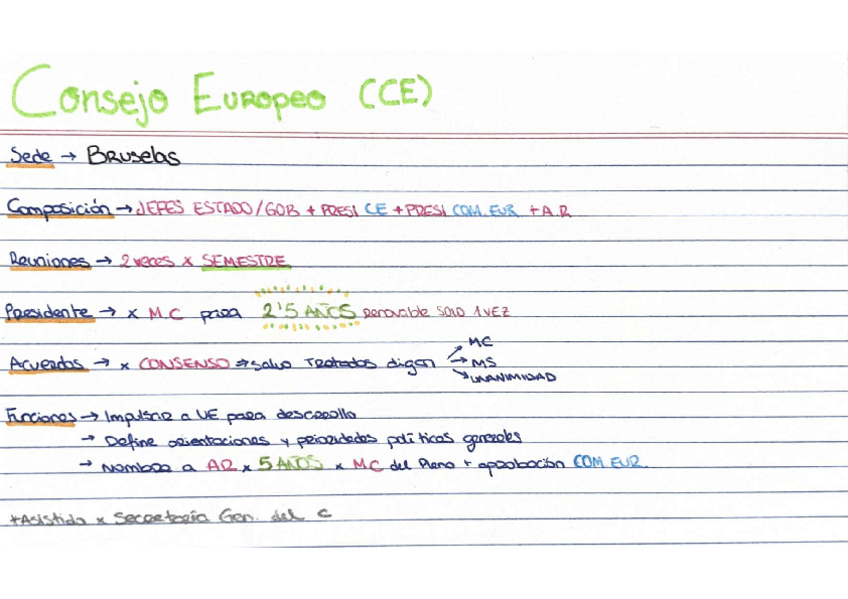 Consejo Europeo (CE)
Sede → Bruselas
Composición → JEFES ESTADO/GOB + PRESI CE + PRESI COM. EUR + A.R
Reuniones → 2 veces x SEMESTRE
Presidente → x M.C para 2'5 AÑOS renovable SOLO 1 VEZ
Acuerdos → x CONSENSO ⇒ salvo Tratados digan → MC
→ MS
→ UNANIMIDAD
Funciones → Impulsar a UE para desarrollo
→ Define orientaciones y prioridades políticas generales
→ Nombra a AR x 5 AÑOS x MC del Pleno + aprobación COM EUR.
+Asistido x Secretaría Gen. del C